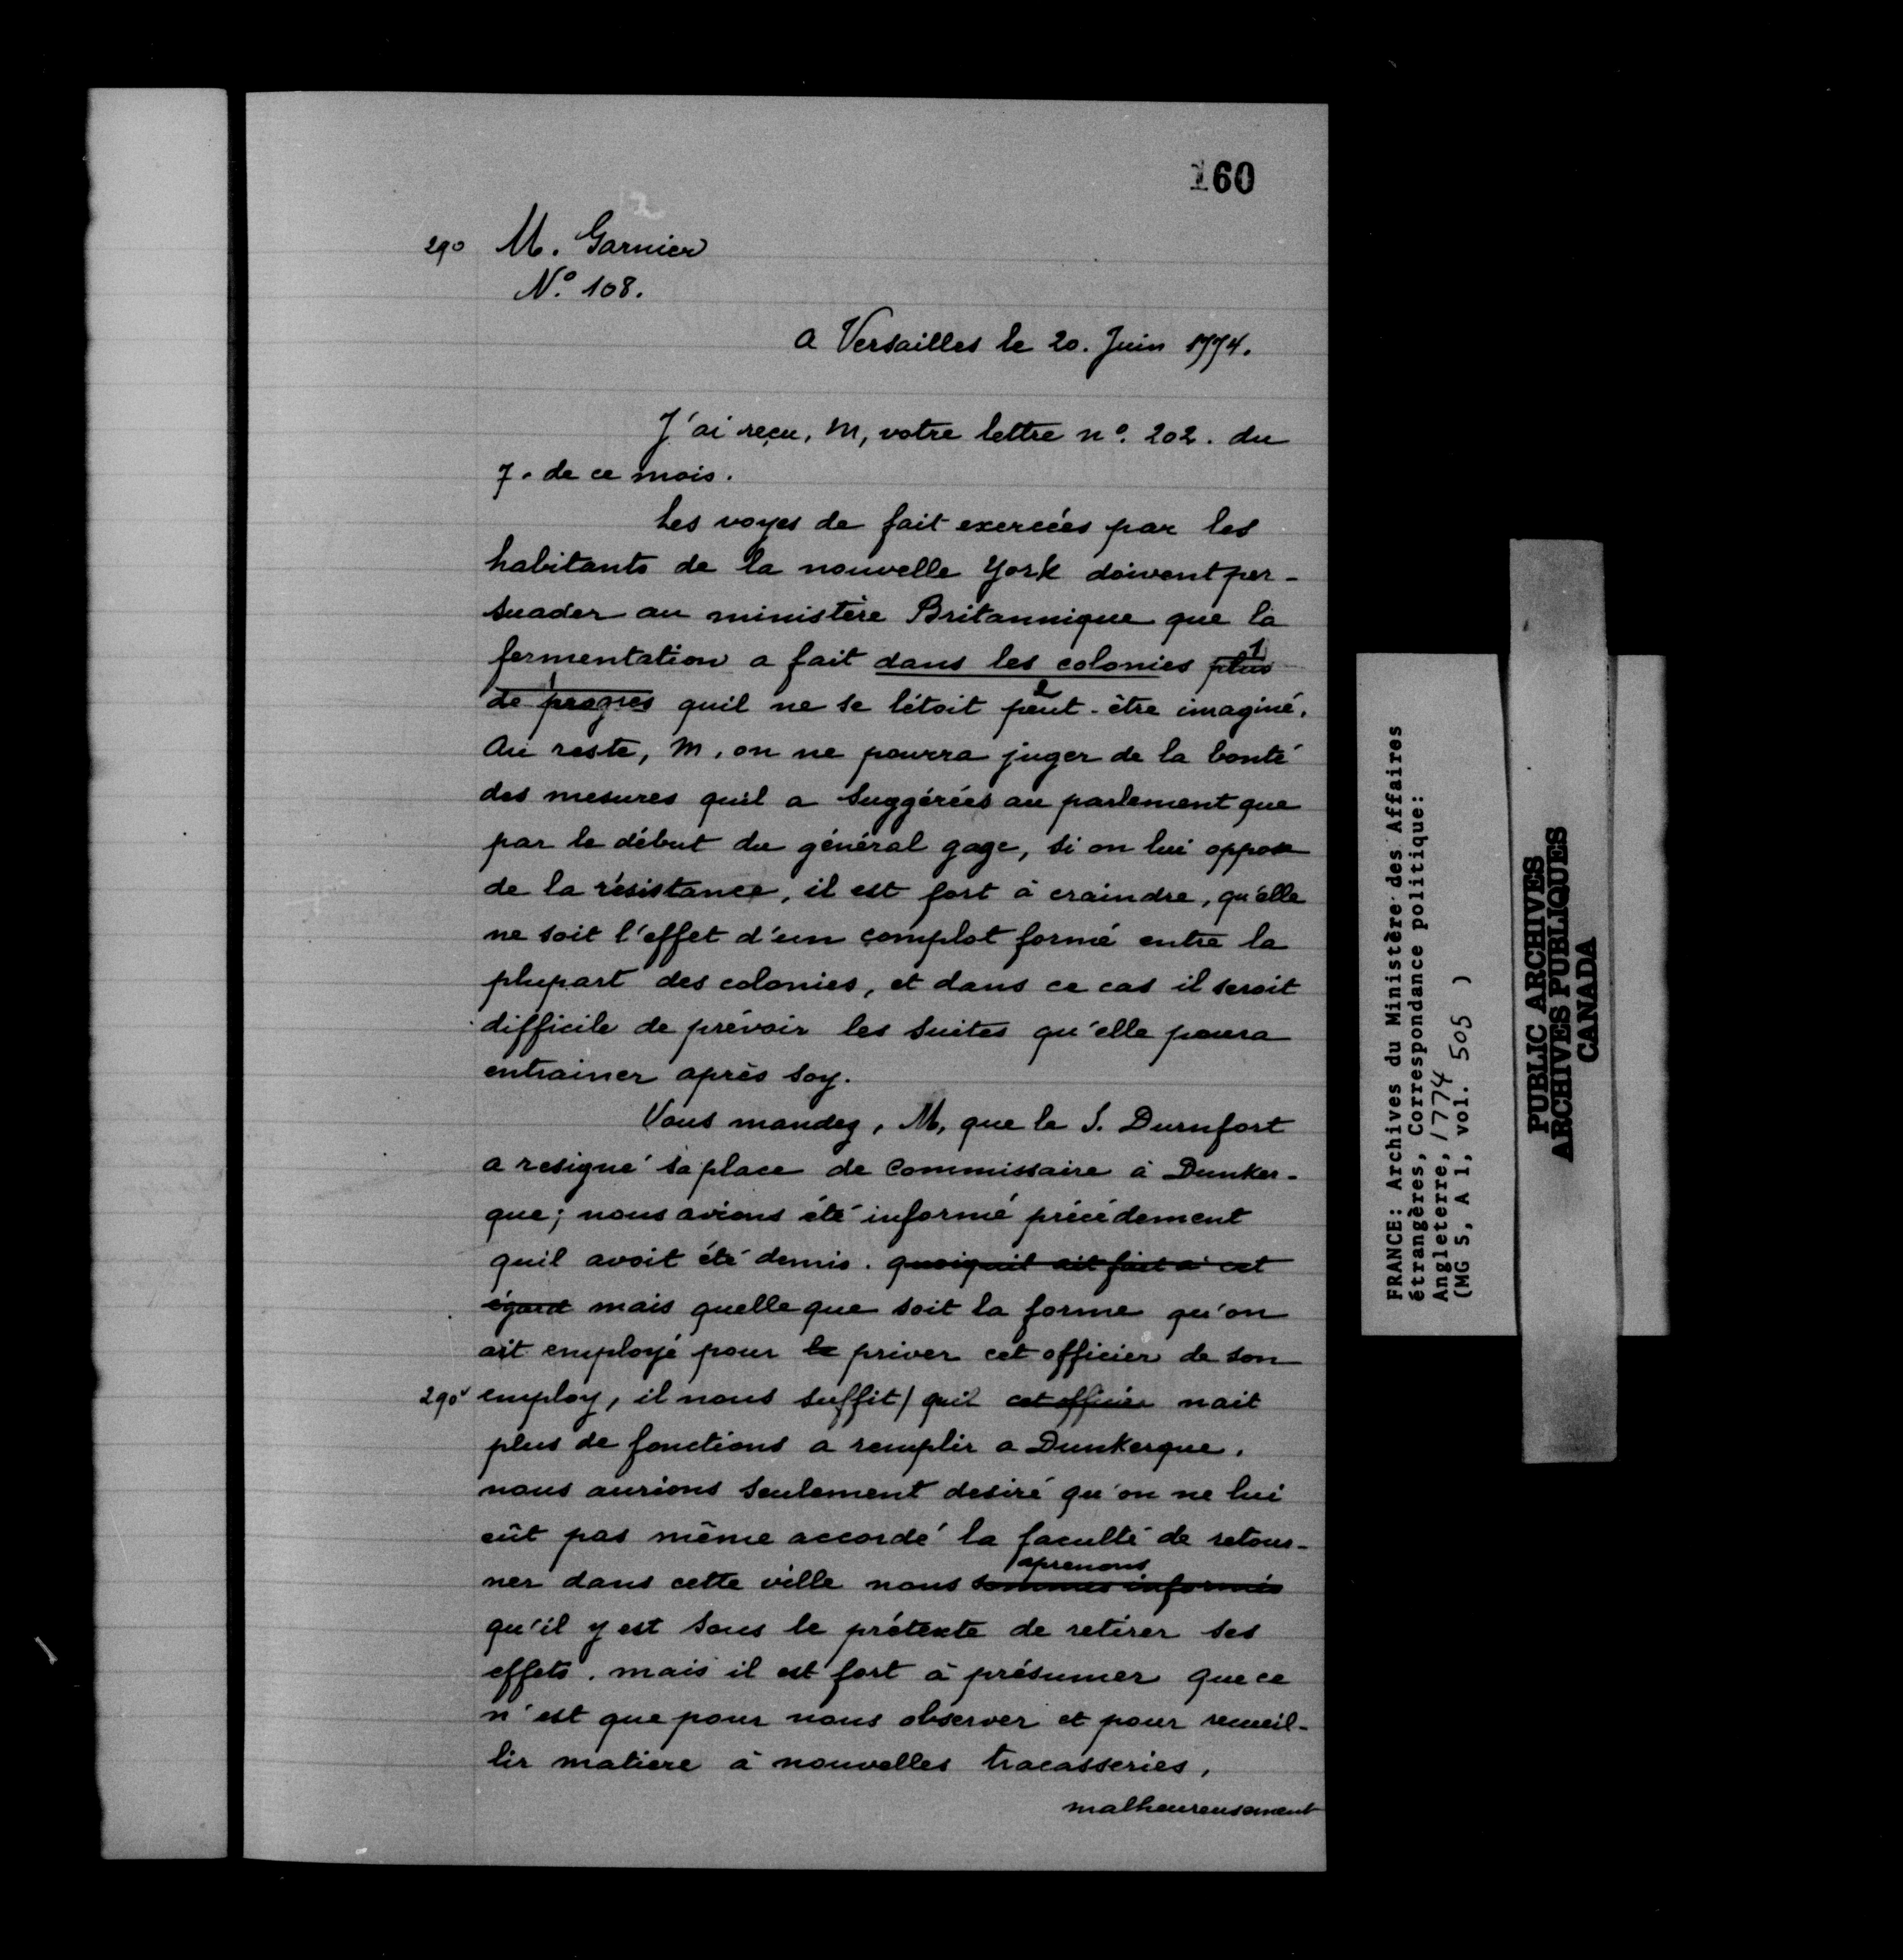 160
290 M. Garnier
Nº. 108.
a Versailles le 20. Juin 1774.
J'ai reçu, M, votre lettre nº. 202. du
7. de ce mois.
Les voyes de fait exercées par les
habitants de la nouvelle York doivent per-
suader au ministère Britannique que la
fermentation a fait dans les colonies plus 1
de progres quil ne se l'étoit peut-être imaginé. 2
Au reste, M, on ne pourra juger de la bonté
des mesures quil a suggérées au parlement que
par le début du général gage, si on lui oppose
de la résistance, il est fort à craindre, qu'elle
ne soit l'effet d'un complot formé entre la
plupart des colonies, et dans ce cas il seroit
difficile de prévoir les suites qu'elle poura
entrainer après soy.
Vous mandez, M, que le S. Durnfort
a resigné sa place de Commissaire à Dunker-
que; nous avions été informé précédement
quil avoit été demis. quoiquil ait fait à cet
égard mais quelle que soit la forme qu'on
ait employé pour le priver cet officier de son
290v employ, il nous suffit/ quil cet officier nait
plus de fonctions a remplir a Dunkerque.
nous aurions seulement desiré qu'on ne lui
eût pas même accordé la faculté de retour-
aprenons
ner dans cette ville nous sommes informés
qu'il y est sous le prétexte de retirer ses
effets. mais il est fort à présumer que ce
n'est que pour nous observer et pour recueil-
lir matiere à nouvelles tracasseries,
malheureusement
FRANCE: Archives du Ministère des Affaires
étrangères, Correspondance politique:
Angleterre, 1774
(MG 5, A 1, vol. 505 )
PUBLIC ARCHIVES
ARCHIVES PUBLIQUES
CANADA